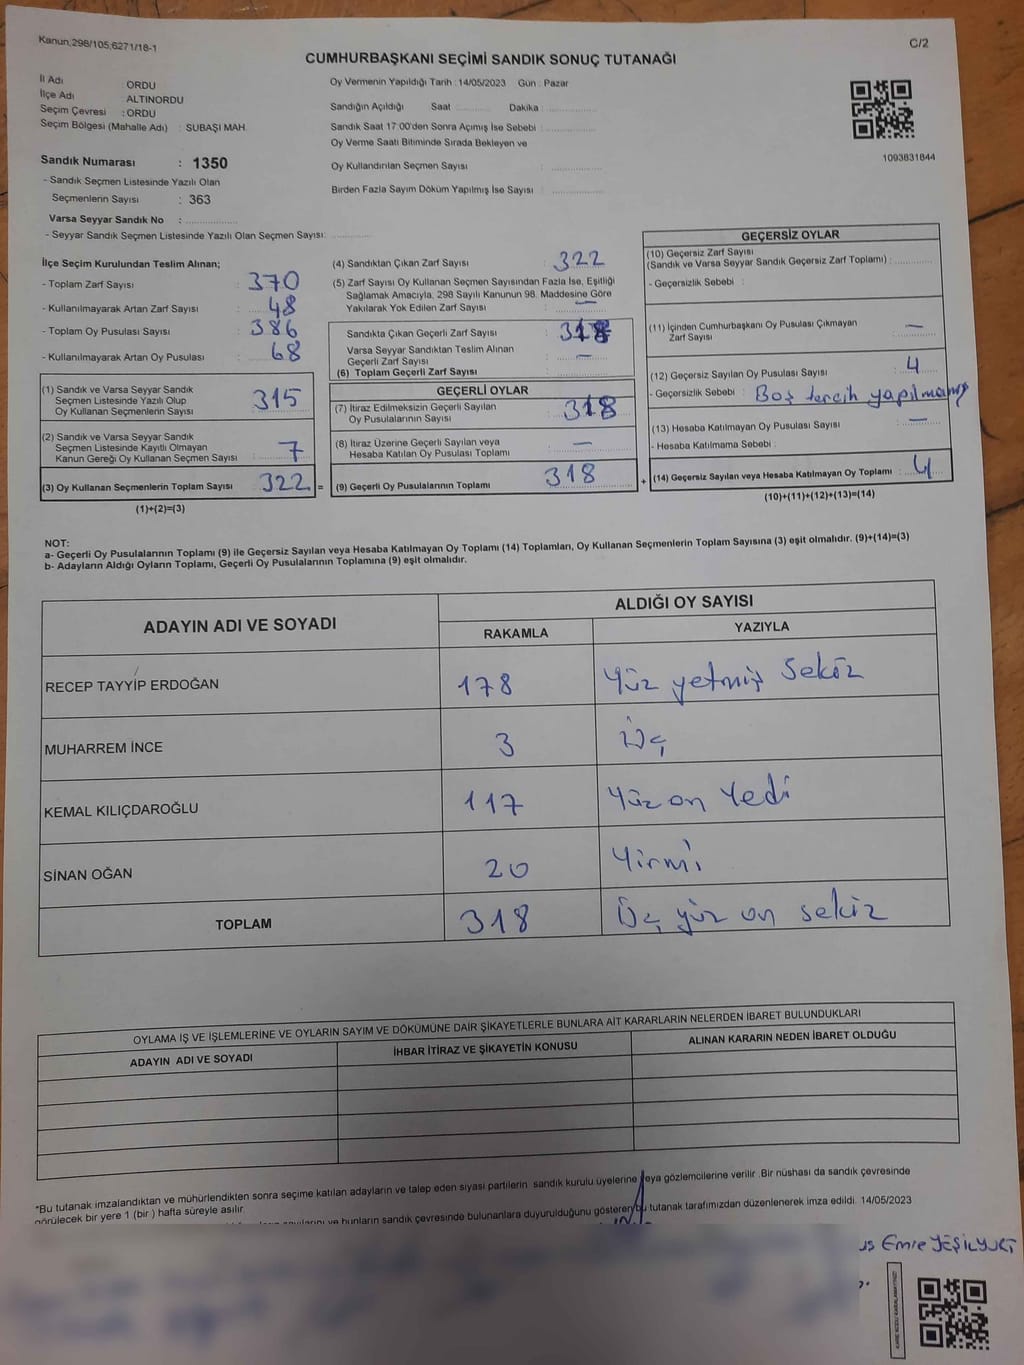 Kanun;298/105;6271/18-1
C/2
CUMHURBAŞKANI SEÇİMİ SANDIK SONUÇ TUTANAĞI
İl Adı : ORDU
İlçe Adı : ALTINORDU
Seçim Çevresi : ORDU
Seçim Bölgesi (Mahalle Adı) : SUBAŞI MAH.
Oy Vermenin Yapıldığı Tarih : 14/05/2023 Gün : Pazar
Sandığın Açıldığı Saat Dakika :
Sandık Saat 17:00'den Sonra Açımış İse Sebebi :
Oy Verme Saati Bitiminde Sırada Bekleyen ve
Oy Kullandırılan Seçmen Sayısı :
Birden Fazla Sayım Döküm Yapılmış İse Sayısı :
1093831844
Sandık Numarası : 1350
- Sandık Seçmen Listesinde Yazılı Olan
Seçmenlerin Sayısı : 363
Varsa Seyyar Sandık No :
- Seyyar Sandık Seçmen Listesinde Yazılı Olan Seçmen Sayısı:
İlçe Seçim Kurulundan Teslim Alınan;
- Toplam Zarf Sayısı : 370
- Kullanılmayarak Artan Zarf Sayısı : 48
- Toplam Oy Pusulası Sayısı : 386
- Kullanılmayarak Artan Oy Pusulası : 68
(1) Sandık ve Varsa Seyyar Sandık
Seçmen Listesinde Yazılı Olup
Oy Kullanan Seçmenlerin Sayısı : 315
(2) Sandık ve Varsa Seyyar Sandık
Seçmen Listesinde Kayıtlı Olmayan
Kanun Gereği Oy Kullanan Seçmen Sayısı : 7
(3) Oy Kullanan Seçmenlerin Toplam Sayısı : 322 =
(1)+(2)=(3)
(4) Sandıktan Çıkan Zarf Sayısı : 322
(5) Zarf Sayısı Oy Kullanan Seçmen Sayısından Fazla İse, Eşitliği
Sağlamak Amacıyla, 298 Sayılı Kanunun 98. Maddesine Göre
Yakılarak Yok Edilen Zarf Sayısı : —
Sandıkta Çıkan Geçerli Zarf Sayısı : 318
Varsa Seyyar Sandıktan Teslim Alınan
Geçerli Zarf Sayısı : —
(6) Toplam Geçerli Zarf Sayısı :
GEÇERLİ OYLAR
(7) İtiraz Edilmeksizin Geçerli Sayılan
Oy Pusulasının Sayısı : 318
(8) İtiraz Üzerine Geçerli Sayılan veya
Hesaba Katılan Oy Pusulası Toplamı : —
(9) Geçerli Oy Pusulalarının Toplamı : 318 +
GEÇERSİZ OYLAR
(10) Geçersiz Zarf Sayısı
(Sandık ve Varsa Seyyar Sandık Geçersiz Zarf Toplamı) :
- Geçersizlik Sebebi :
(11) İçinden Cumhurbaşkanı Oy Pusulası Çıkmayan
Zarf Sayısı : —
(12) Geçersiz Sayılan Oy Pusulası Sayısı : 4
- Geçersizlik Sebebi : Boş tercih yapılmamış
(13) Hesaba Katılmayan Oy Pusulası Sayısı : —
- Hesaba Katılmama Sebebi :
(14) Geçersiz Sayılan veya Hesaba Katılmayan Oy Toplamı : 4
(10)+(11)+(12)+(13)=(14)
NOT:
a- Geçerli Oy Pusulalarının Toplamı (9) ile Geçersiz Sayılan veya Hesaba Katılmayan Oy Toplamı (14) Toplamları, Oy Kullanan Seçmenlerin Toplam Sayısına (3) eşit olmalıdır. (9)+(14)=(3)
b- Adayların Aldığı Oyların Toplamı, Geçerli Oy Pusulalarının Toplamına (9) eşit olmalıdır.
ADAYIN ADI VE SOYADI
ALDIĞI OY SAYISI
RAKAMLA YAZIYLA
RECEP TAYYİP ERDOĞAN 178 Yüz yetmiş sekiz
MUHARREM İNCE 3 Üç
KEMAL KILIÇDAROĞLU 117 Yüz on Yedi
SİNAN OĞAN 20 Yirmi
TOPLAM 318 Üç yüz on sekiz
OYLAMA İŞ VE İŞLEMLERİNE VE OYLARIN SAYIM VE DÖKÜMÜNE DAİR ŞİKAYETLERLE BUNLARA AİT KARARLARIN NELERDEN İBARET BULUNDUKLARI
ADAYIN ADI VE SOYADI İHBAR İTİRAZ VE ŞİKAYETİN KONUSU ALINAN KARARIN NEDEN İBARET OLDUĞU
*Bu tutanak imzalandıktan ve mühürlendikten sonra seçime katılan adayların ve talep eden siyasi partilerin sandık kurulu üyelerine veya gözlemcilerine verilir .Bir nüshası da sandık çevresinde
görülecek bir yere 1 (bir ) hafta süreyle asılır.
ve bunların sandık çevresinde bulunanlara duyurulduğunu gösteren bu tutanak tarafımızdan düzenlenerek imza edildi. 14/05/2023
us Emre YEŞİLYURT